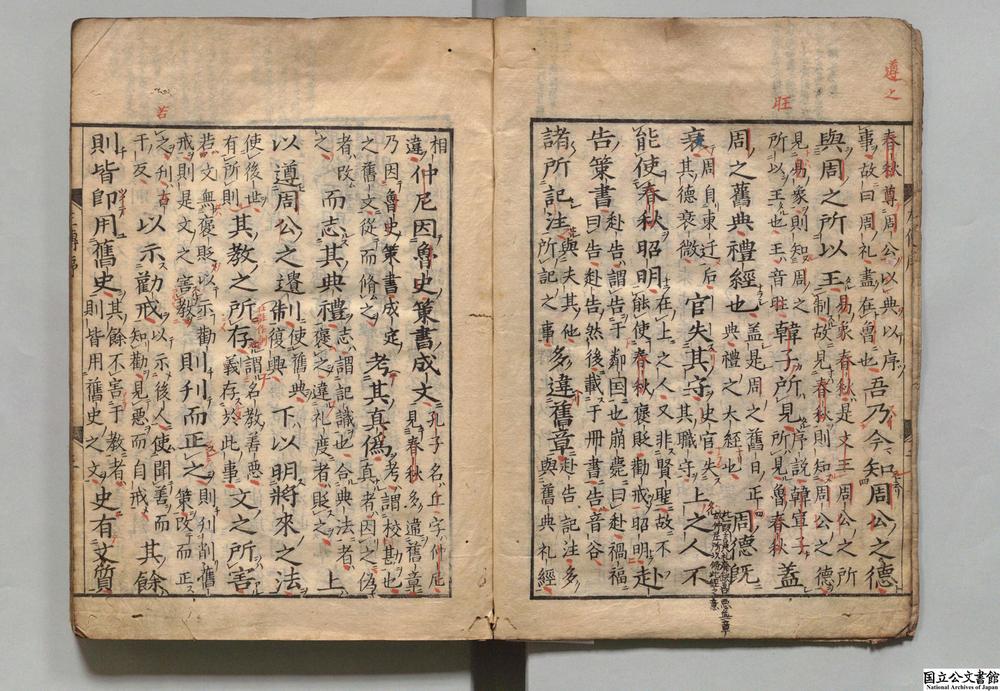 遵之
旺
春秋尊周公以典以序
事故曰周礼盡在魯也
吾乃今知周公之德
與周之所以王
易象春秋是文王周公之所
制故見春秋則知周公之德
見易象則知周之
所以王也王音旺
韓子所見
序說韓宣子
所見魯春秋
蓋
周之舊典禮經也
蓋是周之舊日正
典礼之大經也
周德既
衰
周自東迁后
其德衰微
官失其守
史官失
其職守
上之人不
能使春秋昭明
在上之人又非賢聖故不
能使春秋褒貶勸戒昭明
赴
告策書
赴告謂告于鄰国也崩薨曰赴禍福
曰告赴告然後載于册書告音谷
諸所記注
與夫其他
所記之事
多違舊章
赴告記注多
與舊典礼經
若
相
違
仲尼因魯史策書成文
孔子名丘字仲尼
見春秋多違舊章
乃因魯史策書成定
之舊文從而脩之
考其真偽
考謂校勘也
真者因之偽
者改
之
而志其典禮
志謂記識也合典法者
褒之違礼度者貶之
上
以遵周公之遺制
使舊典
復興
下以明將來之法
使後世
有所則
其教之所存
謂名教善悪
義存於此事
文之所害
若文無褒貶以示勸
戒則是文之害教
則刊而正之
則刊削舊
策改而正
之刊音
干反
以示勸戒
以示後人使聞善而
知勸見悪而自戒
其餘
則皆即用舊史
其餘不害于教者
則皆用舊史之文
史有文質
国立公文書館
National Archives of Japan